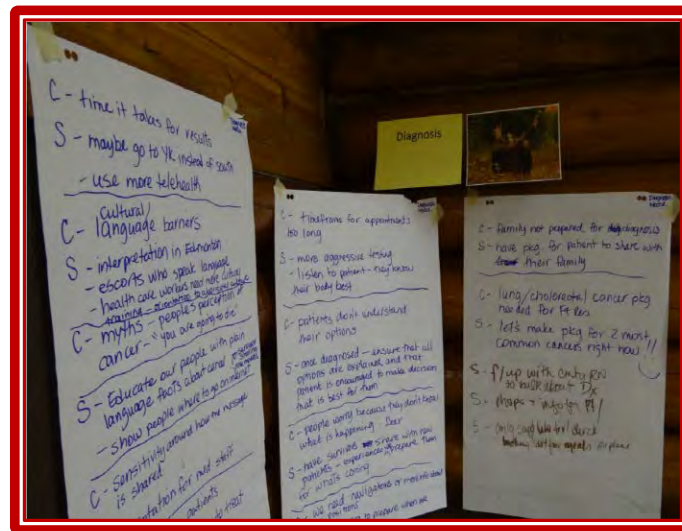 C - time it takes for results
S - maybe go to YK instead of south
- use more telehealth
C - Cultural/
language barriers
S - interpretation in Edmonton
- escorts who speak language
- health care workers need more cultural
training -
C - myths - people's perception
cancer - "you are going to die"
S - Educate our people with plain
language facts about cancer
- show people where to go on internet
C - Sensitivity around how the message
is shared
for med staff
patients
to treat
Diagnosis
C - timeframe for appointments
too long
S - more aggressive testing
- listen to patient - they know
their body best
C - patients don't understand
their options
S - once diagnosed - ensure that all
options are explained and that
patient is encouraged to make decision
that is best for them
C - people worry because they don't know
what is happening. fear
S - have survivors share with new
patients - experiences prepare them
for what's coming
C - we need navigators or more info about
positions
to prepare when
C - family not prepared for diagnosis
S - have pkg for patient to share with
their family
C - lung/cholorectal cancer pkg
needed for Ft Res
S - let's make pkg for 2 most
common cancers right now!!
S - f/up with cmty RN
to talk about Dx
S - maps - info for pt/
S -